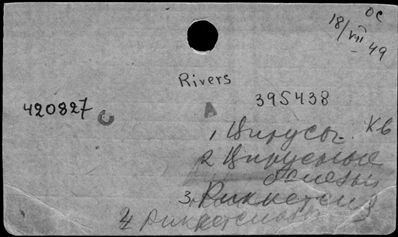 ОС
18/VII 49
Rivers
420827 С
А 395438
1. Вирусы. Кв
2 Вирусные
болезни
3. Риккетсии
4 Риккетсиозы